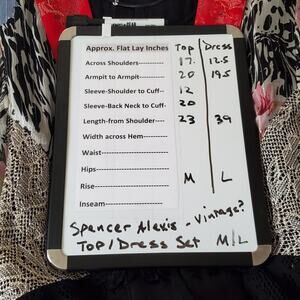 Approx. Flat Lay Inches Top Dress
Across Shoulders---------- 17. 12.5
Armpit to Armpit---------- 20 19.5
Sleeve-Shoulder to Cuff-- 12
Sleeve-Back Neck to Cuff- 20
Length-from Shoulder---- 23 39
Width across Hem----------
Waist----------
Hips----------
Rise---------- M L
Inseam----------
Spencer Alexis - Vintage?
Top/Dress Set M/L